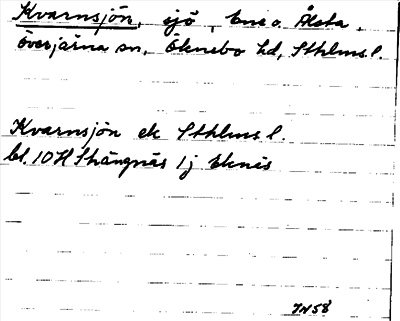 Kvarnsjön, sjö, Ene o. Ålsta,
Överjärna sn, Öknebo hd, Sthlms l.
Kvarnsjön ek Sthlms l.
bl. 10H Strängnäs 1j Eknäs
IN58